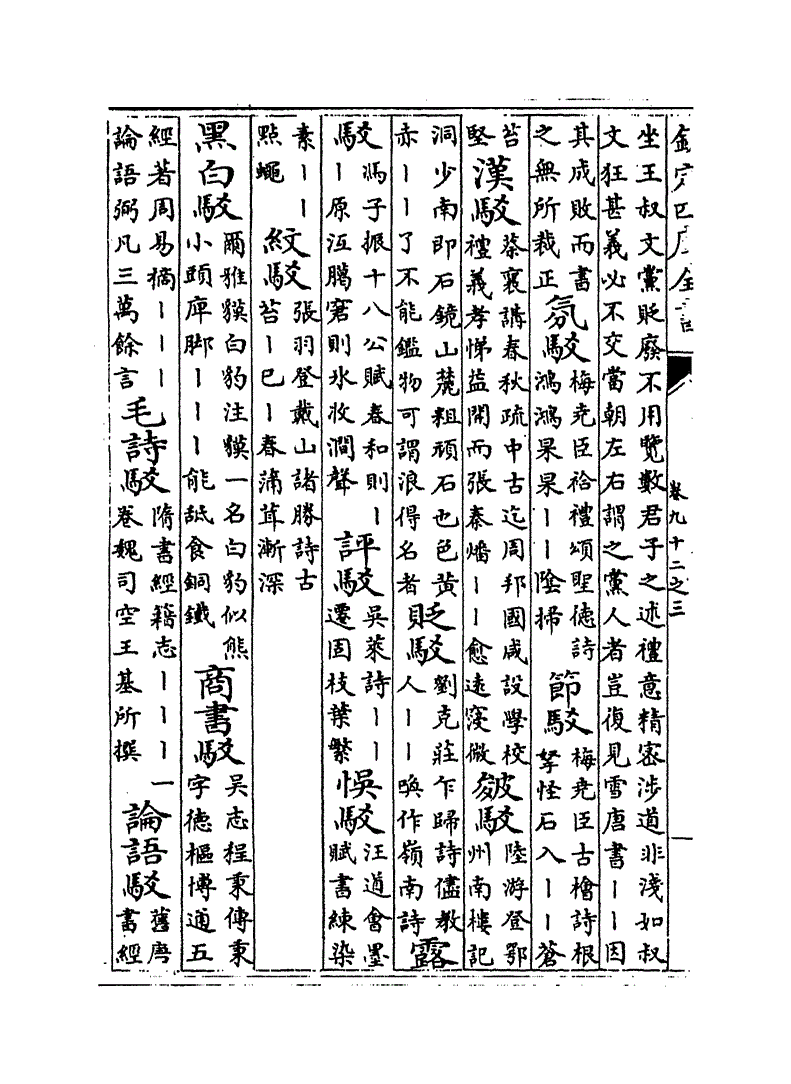 欽定四庫全書
卷九十二之三
坐王叔文黨貶廢不用覽數君子之述禮意精密涉道非淺如叔
文狂甚義必不交當朝左右謂之黨人者豈復見雪唐書丨丨因
其成敗而書
之無所裁正
氛駁
梅堯臣祫禮頌聖德詩
鴻鴻杲杲丨丨陰掃
節駁
梅堯臣古檜詩根
拏怪石入丨丨蒼
苔
堅
漢駁
蔡襄講春秋疏中古迄周邦國咸設學校
禮義孝悌益開而張秦燔丨丨愈遠寖微
皴駁
陸游登鄂
州南樓記
洞少南即石鏡山麓粗頑石也色黄
赤丨丨了不能鑑物可謂浪得名者
貶駁
劉克莊乍歸詩儘教
人丨丨喚作嶺南詩
露
駁
馮子振十八公賦春和則丨
丨原沍臈窘則氷收澗聲
評駁
吳萊詩丨丨
遷固枝葉繁
悞駁
汪道會墨
賦書練染
素丨丨
點蠅
紋駁
張羽登戴山諸勝詩古
苔丨已丨春蒲茸漸深
黑白駁
爾雅貘白豹注貘一名白豹似熊
小頭庳脚丨丨丨能舐食銅鐵
商書駁
吳志程秉傳秉
字德樞博通五
經著周易摘丨丨丨
論語弼凡三萬餘言
毛詩駁
隋書經籍志丨丨丨一
卷魏司空王基所撰
論語駁
舊唐
書經